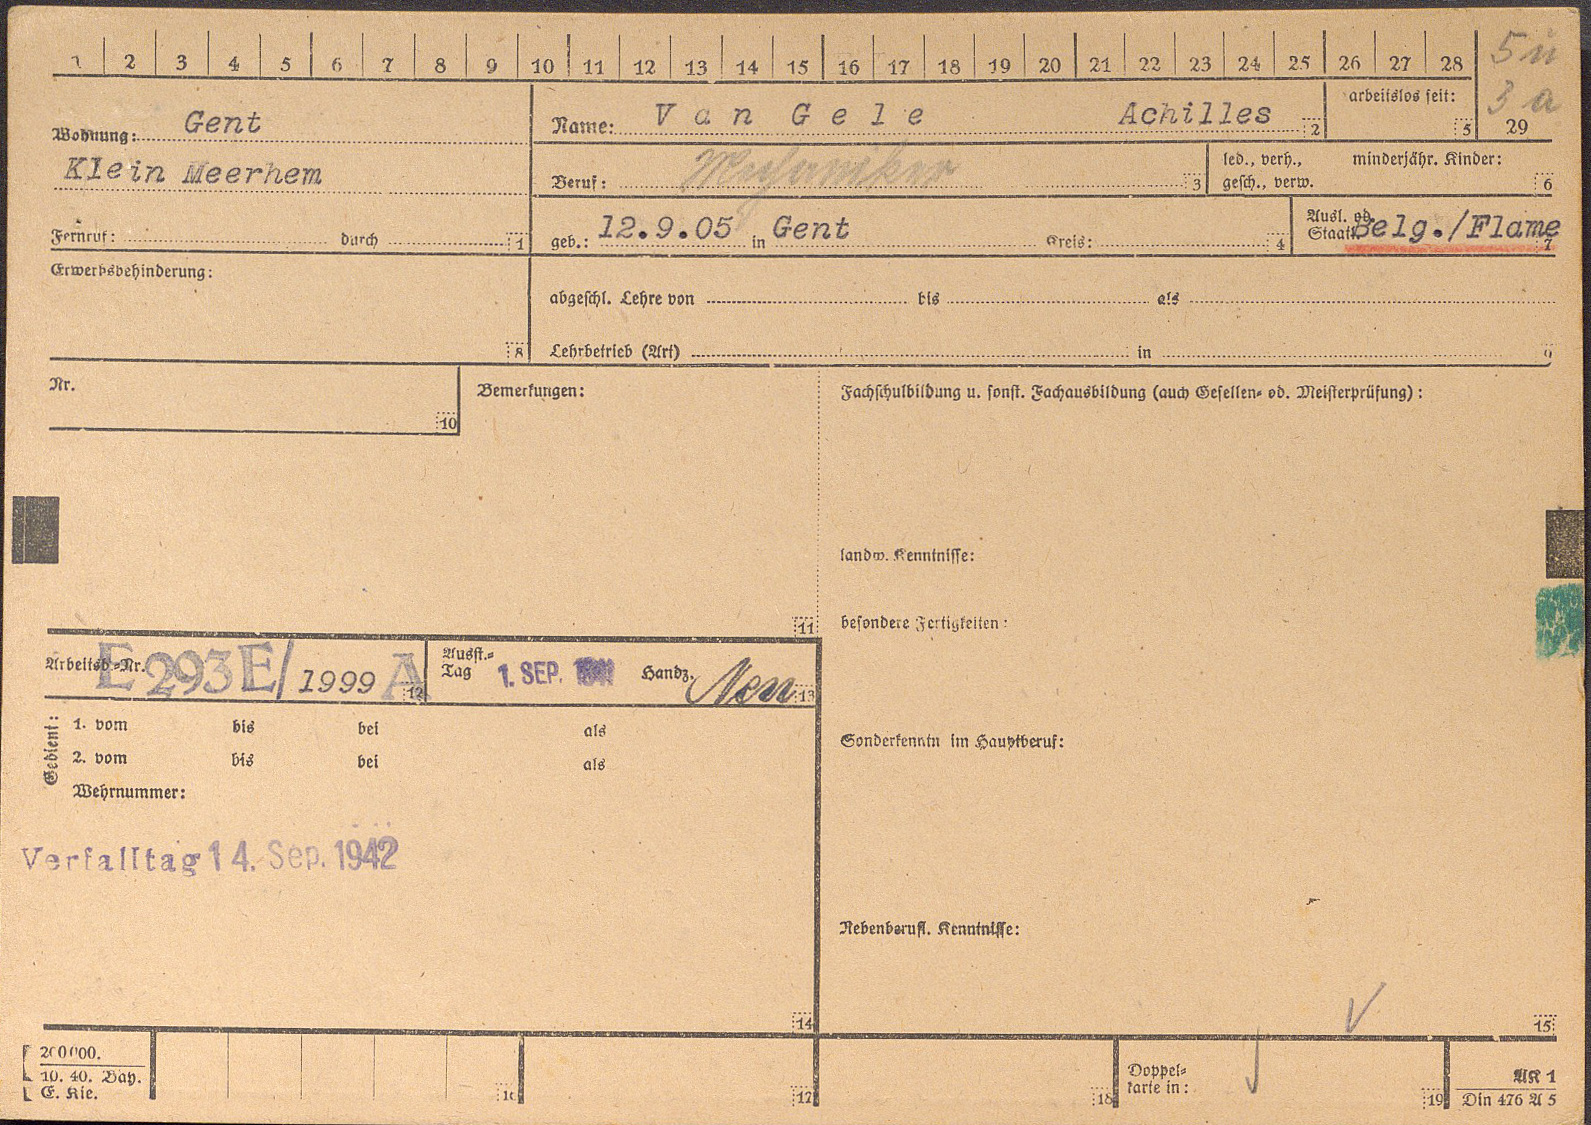 1 2 3 4 5 6 7 8 9 10 11 12 13 14 15 16 17 18 19 20 21 22 23 24 25 26 27 28 29
5 ii
3 a
Wohnung: Gent
Klein Meerhem
Fernruf: durch 1
Name: Van Gele Achilles 2
arbeitslos seit: 5
Beruf: Mechaniker 3
led., verh., gesch., verw. minderjähr. Kinder: 6
geb.: 12.9.05 in Gent Kreis: 4
Ausl. od. Staatl. Belg./Flame 7
Erwerbsbehinderung: 8
abgeschl. Lehre von bis als
Lehrbetrieb (Art) in 9
Nr. 10
Bemerkungen: 11
Fachschulbildung u. sonst. Fachausbildung (auch Gesellen- od. Meisterprüfung):
landw. Kenntnisse:
besondere Fertigkeiten:
Arbeitsb.-Nr. E 293 E/1999 A 12
Ausst.-Tag 1. SEP. 1941 Handz. 13
Gedient:
1. vom bis bei als
2. vom bis bei als
Wehrnummer:
Sonderkenntn im Hauptberuf:
Verfalltag 14. Sep. 1942
Nebenberufl. Kenntnisse:
14
15
200000.
10. 40. Bay.
E. Kie.
16
17
18
Doppel-
karte in: 19
AK 1
Din 476 A 5